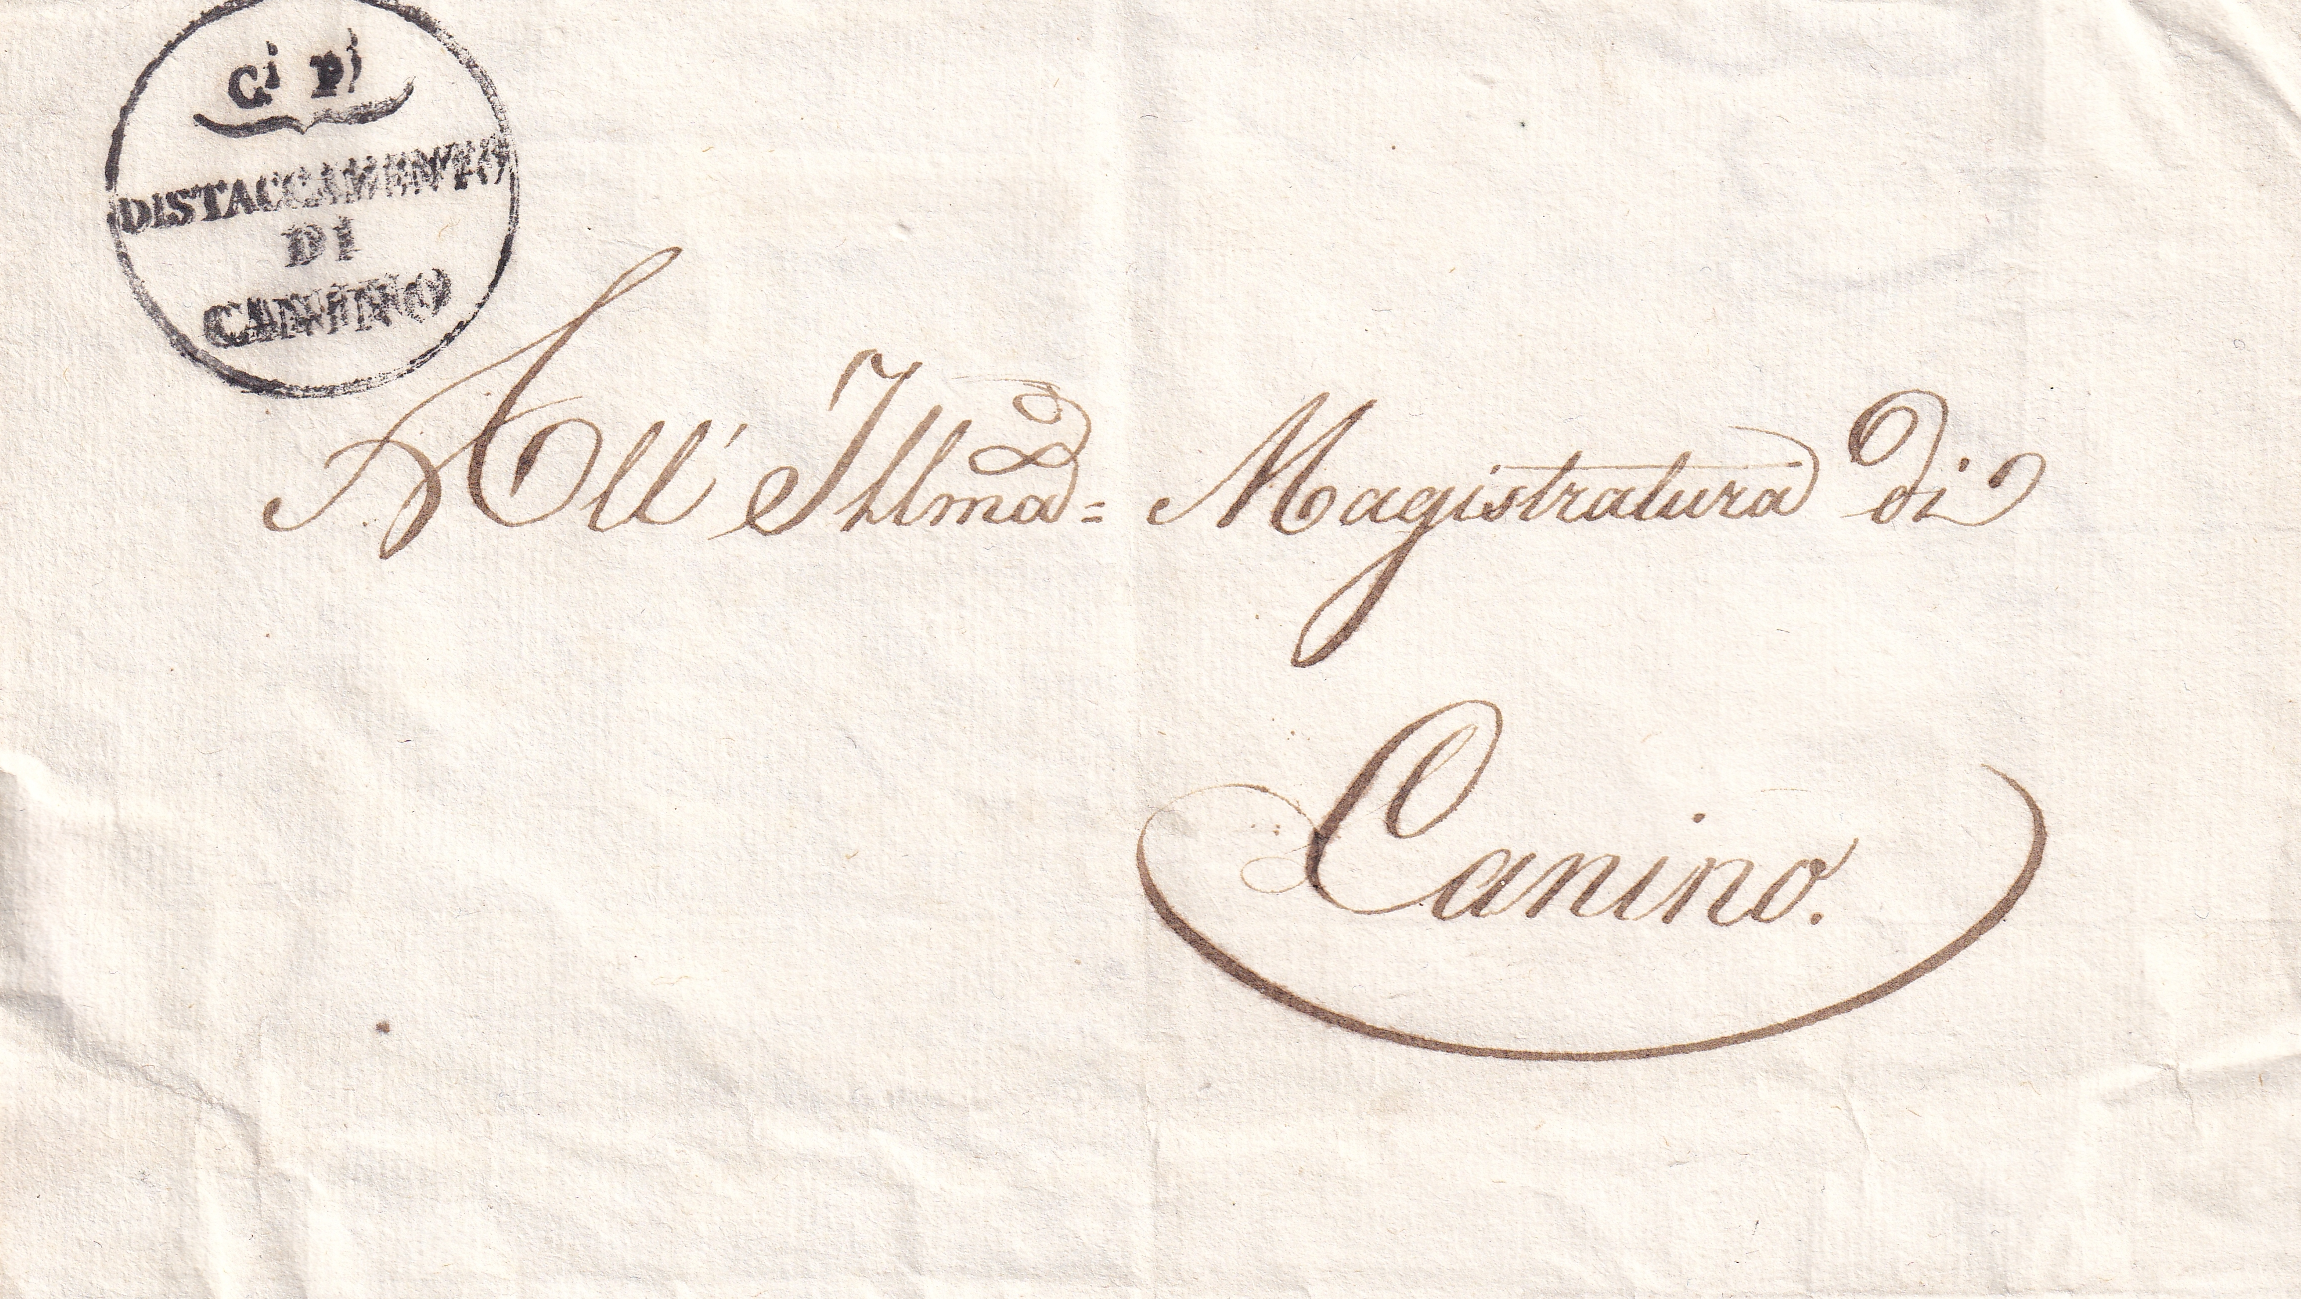 Cⁱ Pⁱ
DISTACCAMENTO
DI
CANINO
All' Illma= Magistratura di
Canino.